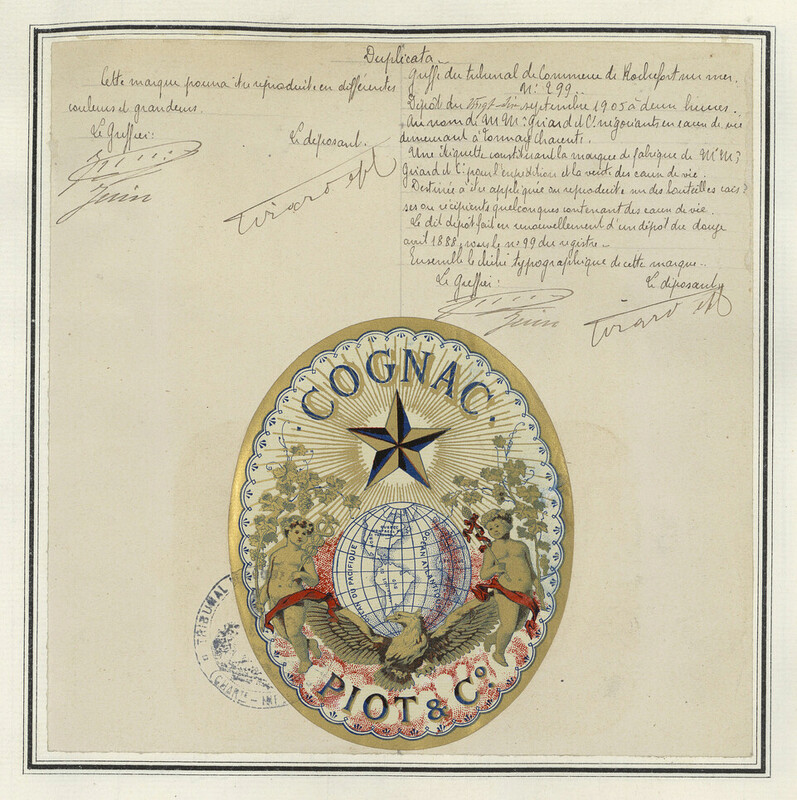 Duplicata
Cette marque pourra être reproduite en différentes
couleurs et grandeurs.
Le Greffier:
Le déposant.
Juin
Girard et Cie
Greffe du tribunal de Commerce de Rochefort sur mer.
N° 299.
Dépôt du Vingt-six septembre 1905 à deux heures.
Au nom de MM: Girard et Cie négociants en eaux de vie
demeurant à Tonnay Charente.
Une étiquette constituant la marque de fabrique de MMrs
Girard et Cie pour l'expédition et la vente des eaux de vie.
Destinée à être appliquée ou reproduite sur des bouteilles cais-
ses ou récipients quelconques contenant des eaux de vie.
Le dit dépôt fait en renouvellement d'un dépôt du douze
avril 1888, sous le n° 99 du registre.
Ensemble le cliché typographique de cette marque.
Le Greffier:
Le déposant
Juin
Girard et Cie
·COGNAC·
OCÉAN DU PACIFIQUE
OCÉAN ATLANTIQUE
PIOT & Cº.
TRIBUNAL
(CHARTE - INF